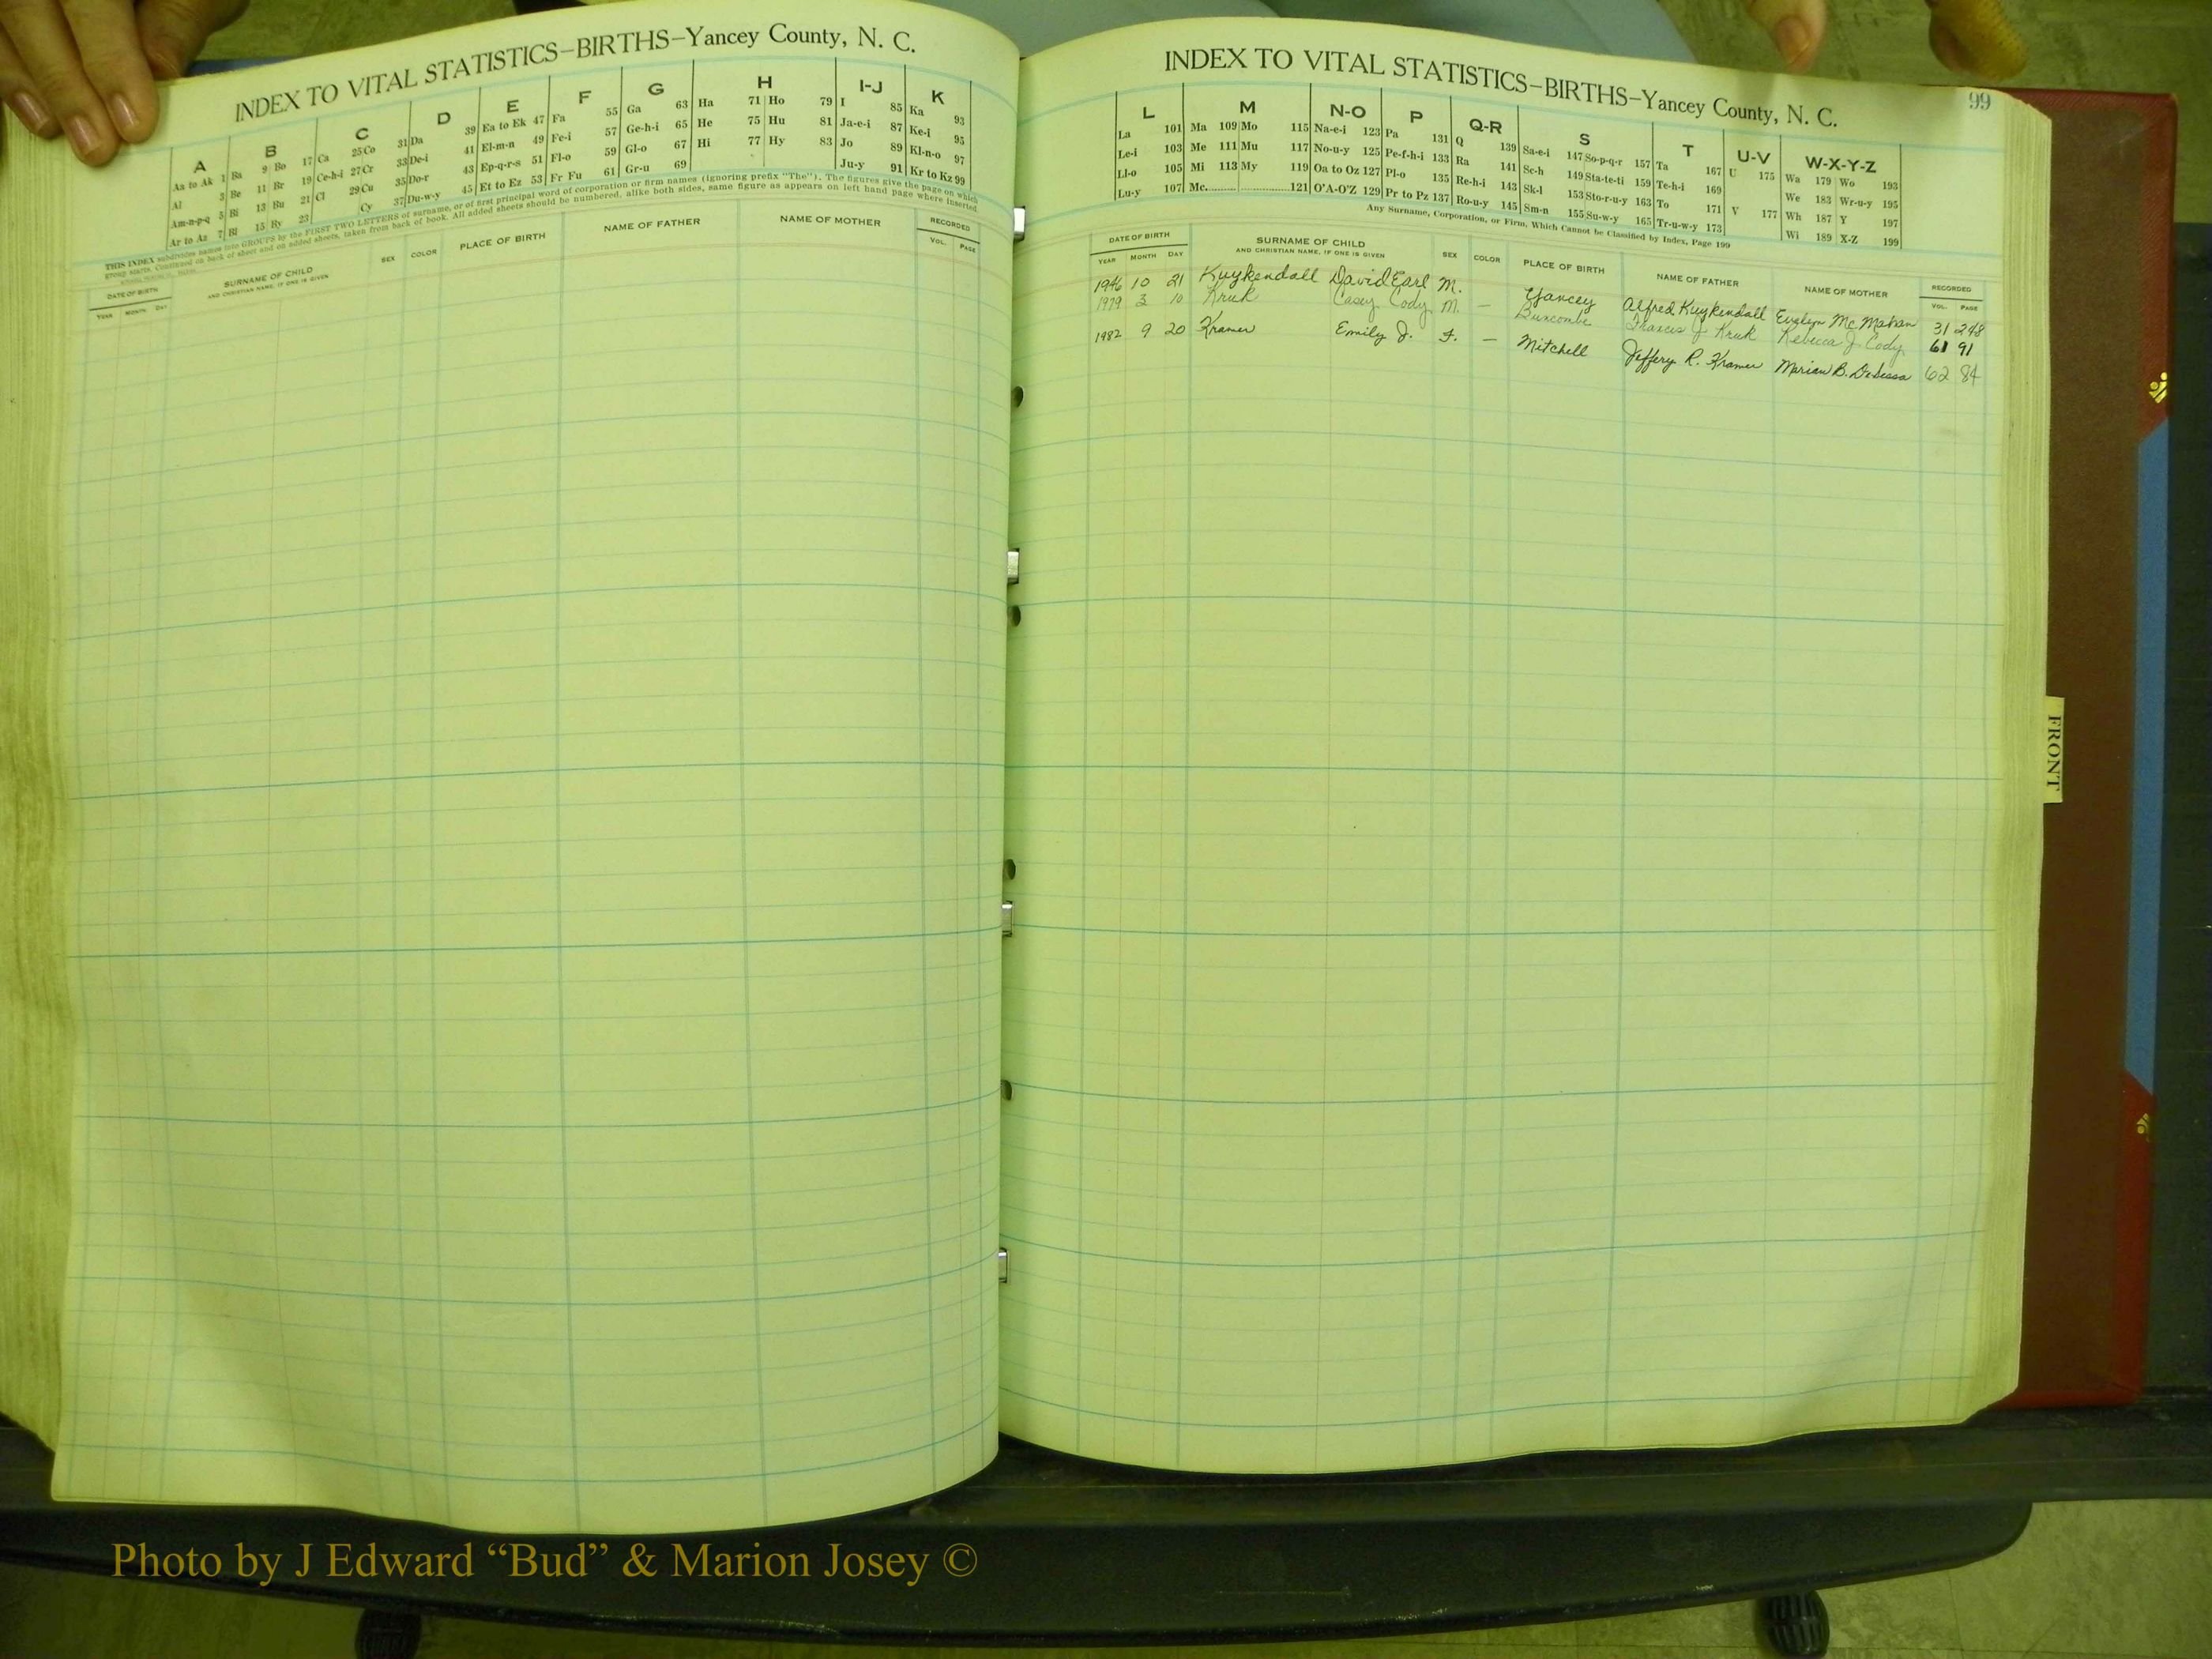 INDEX TO VITAL STATISTICS–BIRTHS–Yancey County, N. C.
A B C D E F G H I-J K
Aa to Ak 1 Ba 9 Bo 17 Ca 25 Co 31 Da 39 Ea to Ek 47 Fa 55 Ga 63 Ha 71 Ho 79 I 85 Ka 93
Al 3 Be 11 Br 19 Ce-h-i 27 Cr 33 De-i 41 El-m-n 49 Fe-i 57 Ge-h-i 65 He 75 Hu 81 Ja-e-i 87 Ke-i 95
Am-n-p-q 5 Bi 13 Bu 21 Cl 29 Cu 35 Do-r 43 Ep-q-r-s 51 Fl-o 59 Gl-o 67 Hi 77 Hy 83 Jo 89 Kl-n-o 97
Ar to Az 7 Bl 15 By 23 Cy 37 Du-w-y 45 Et to Ez 53 Fr Fu 61 Gr-u 69 Ju-y 91 Kr to Kz 99
THIS INDEX subdivides names into GROUPS by the FIRST TWO LETTERS of surname, or of first principal word of corporation or firm names (ignoring prefix "The"). The figures give the page on which
group starts. Continued on back of sheet and on added sheets, taken from back of book. All added sheets should be numbered, alike both sides, same figure as appears on left hand page where inserted.
DATE OF BIRTH SURNAME OF CHILD SEX COLOR PLACE OF BIRTH NAME OF FATHER NAME OF MOTHER RECORDED
YEAR MONTH DAY AND CHRISTIAN NAME, IF ONE IS GIVEN VOL. PAGE
99
INDEX TO VITAL STATISTICS–BIRTHS–Yancey County, N. C.
L M N-O P Q-R S T U-V W-X-Y-Z
La 101 Ma 109 Mo 115 Na-e-i 123 Pa 131 Q 139 Sa-e-i 147 So-p-q-r 157 Ta 167 U 175 Wa 179 Wo 193
Le-i 103 Me 111 Mu 117 No-u-y 125 Pe-f-h-i 133 Ra 141 Sc-h 149 Sta-te-ti 159 Te-h-i 169 We 183 Wr-u-y 195
Ll-o 105 Mi 113 My 119 Oa to Oz 127 Pl-o 135 Re-h-i 143 Sk-l 153 Sto-r-u-y 163 To 171 V 177 Wh 187 Y 197
Lu-y 107 Mc 121 O'A-O'Z 129 Pr to Pz 137 Ro-u-y 145 Sm-n 155 Su-w-y 165 Tr-u-w-y 173 Wi 189 X-Z 199
Any Surname, Corporation, or Firm, Which Cannot be Classified by Index, Page 199
DATE OF BIRTH SURNAME OF CHILD SEX COLOR PLACE OF BIRTH NAME OF FATHER NAME OF MOTHER RECORDED
YEAR MONTH DAY AND CHRISTIAN NAME, IF ONE IS GIVEN VOL. PAGE
1946 10 21 Kuykendall David Earl M. Yancey Alfred Kuykendall Evelyn McMahan 31 248
1979 3 10 Kruk Casey Cody M. — Buncombe Francis J. Kruk Rebecca J. Cody 61 91
1982 9 20 Kramer Emily J. F. — Mitchell Jeffery R. Kramer Marian B. 62 84
FRONT
Photo by J Edward “Bud” & Marion Josey ©